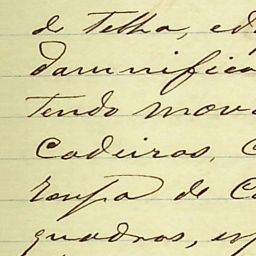 de Telha, ed
damnifica
tendo mov
Cadeiras, C
roupa de Ca
quadros, es